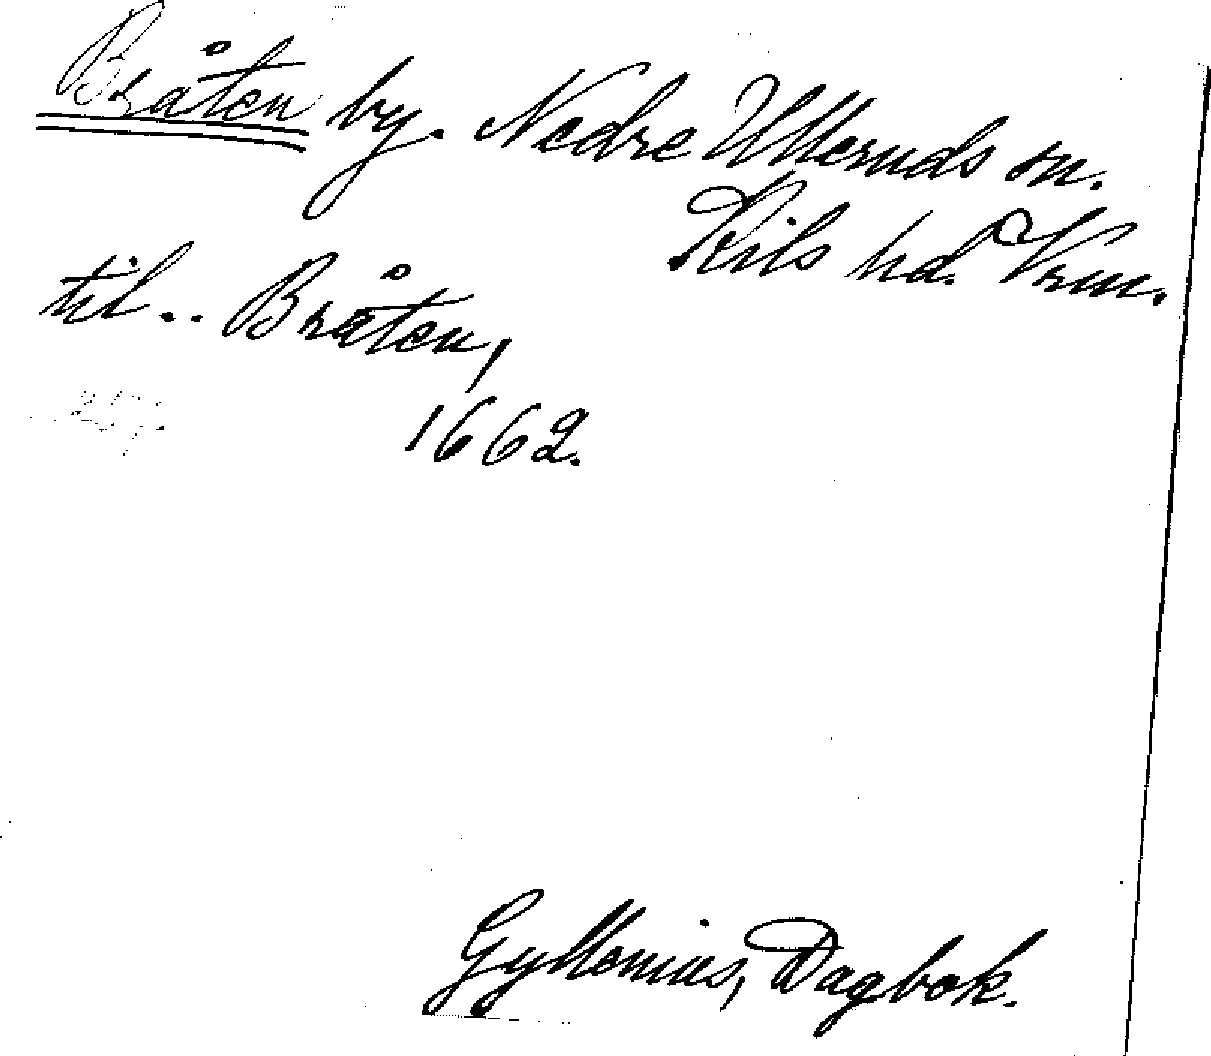 Bråten by. Nedre Ulleruds sn.
Kils hd. Vrm.
til .. Bråten,
1662.
Gyllenius, Dagbok.